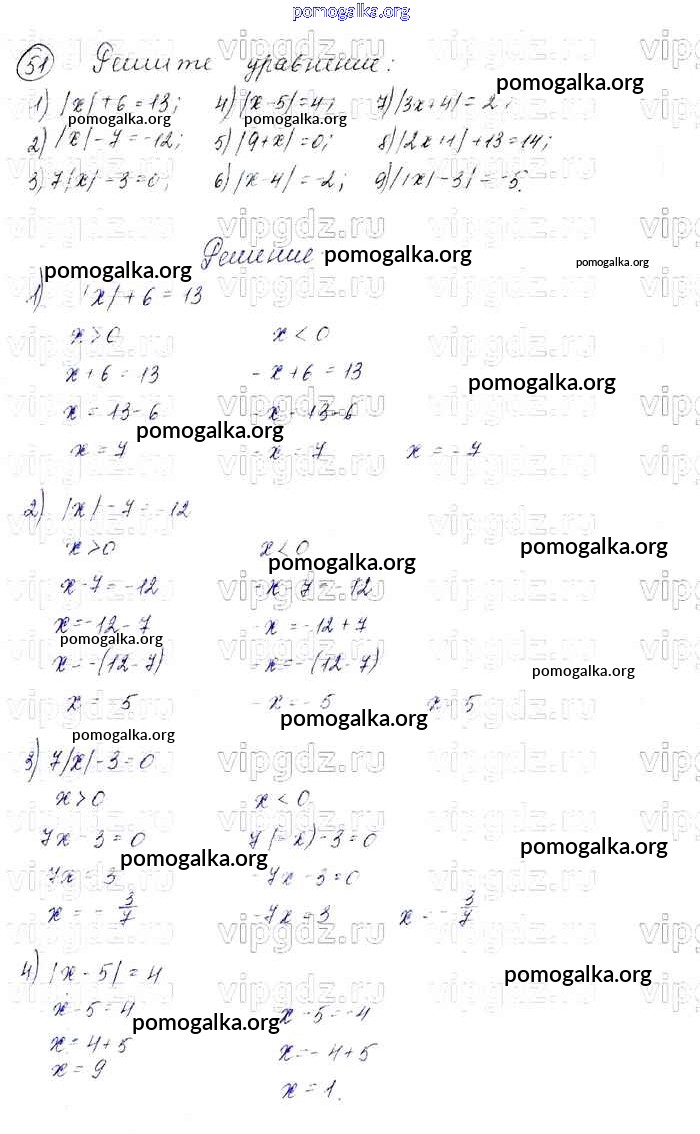 pomogalka.org
51 Решите уравнение:
pomogalka.org
1) |x| + 6 = 13; 4) |x - 5| = 4; 7) |3x + 4| = 2;
pomogalka.org pomogalka.org
2) |x| - 7 = -12; 5) |9 + x| = 0; 8) |2x + 1| + 13 = 14;
3) 7|x| - 3 = 0; 6) |x - 4| = -2; 9) ||x| - 3| = -5.
Решение
pomogalka.org pomogalka.org pomogalka.org
1) |x| + 6 = 13
x > 0 x < 0
x + 6 = 13 - x + 6 = 13
pomogalka.org
x = 13 - 6 - x = 13 - 6
pomogalka.org
x = 7 - x = 7 x = - 7
2) |x| - 7 = -12
x > 0 x < 0
pomogalka.org pomogalka.org
x - 7 = -12 - x - 7 = -12
x = -12 - 7 - x = -12 + 7
pomogalka.org
x = -(12 - 7) - x = -(12 - 7)
pomogalka.org
x = - 5 - x = - 5 x = 5
pomogalka.org
pomogalka.org
3) 7|x| - 3 = 0
x > 0 x < 0
7x - 3 = 0 7(-x) - 3 = 0
pomogalka.org pomogalka.org
7x = 3 - 7x - 3 = 0
x = - 3/7 - 7x = 3 x = - 3/7
4) |x - 5| = 4
pomogalka.org
x - 5 = 4 x - 5 = -4
pomogalka.org
x = 4 + 5 x = - 4 + 5
x = 9 x = 1.
vipgdz.ru